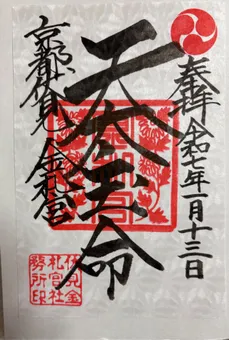 奉拝 令和七年一月十三日
天太玉命
京都伏見 金札宮
伏見金
札宮社
務所印